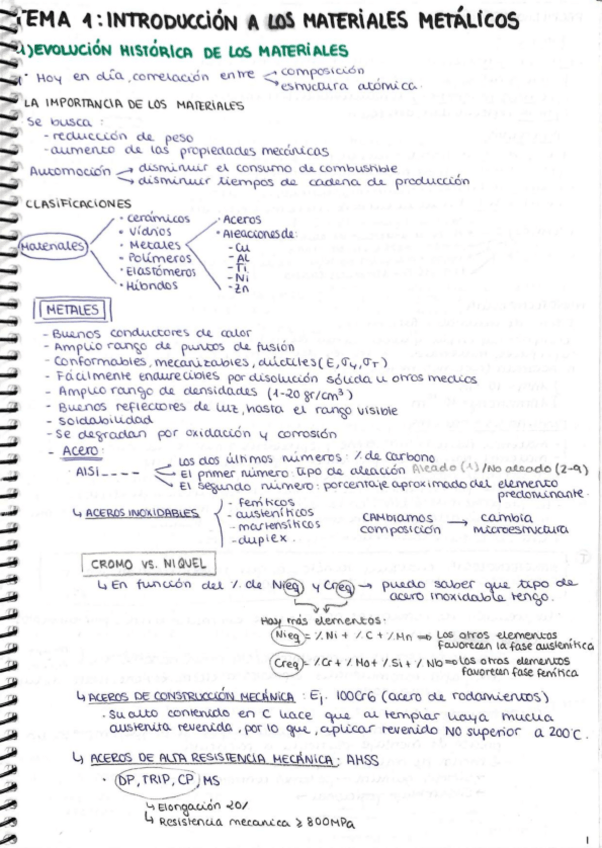 TEMA 1: INTRODUCCIÓN A LOS MATERIALES METÁLICOS
1) EVOLUCIÓN HISTÓRICA DE LOS MATERIALES
Hoy en día, correlación entre composición
estructura atómica.
LA IMPORTANCIA DE LOS MATERIALES
Se busca:
- reducción de peso
- aumento de las propiedades mecánicas
Automoción → disminuir el consumo de combustible
→ disminuir tiempos de cadena de producción
CLASIFICACIONES
Materiales
· cerámicos
· Vidrios
· Metales
· Polímeros
· Elastómeros
· Híbridos
· Aceros
· Aleaciones de:
- Cu
- Al
- Ti
- Ni
- Zn
METALES
- Buenos conductores de calor
- Amplio rango de puntos de fusión
- Conformables, mecanizables, dúctiles (E, σy, σT)
- Fácilmente endurecibles por disolución sólida u otros medios
- Amplio rango de densidades (1-20 gr/cm³)
- Buenos reflectores de luz, hasta el rango visible
- Soldabilidad
- Se degradan por oxidación y corrosión
- Acero:
· AISI _ _ _ _
Los dos últimos números: % de carbono
El primer número: tipo de aleación Aleado (1) / No aleado (2-9)
El segundo número: porcentaje aproximado del elemento
predominante.
↳ ACEROS INOXIDABLES
- ferríticos
- austeníticos
- martensíticos
- duplex.
CAMBIAMOS composición → cambia microestructura
CROMO VS. NIQUEL
↳ En función del % de Nieq y Creq → puedo saber que tipo de
acero inoxidable tengo.
Hay más elementos:
Nieq = % Ni + % C + % Mn ⇒ Los otros elementos
favorecen la fase austenítica
Creq = % Cr + % Mo + % Si + % Nb ⇒ los otros elementos
favorecen fase ferrítica
↳ ACEROS DE CONSTRUCCIÓN MECÁNICA: Ej. 100Cr6 (acero de rodamientos)
· Su alto contenido en C hace que al templar haya mucha
austenita revenida, por lo que, aplicar revenido NO superior a 200°C.
↳ ACEROS DE ALTA RESISTENCIA MECÁNICA: AHSS
· DP, TRIP, CP, MS
↳ Elongación 20%
↳ Resistencia mecanica ≥ 800MPa
1